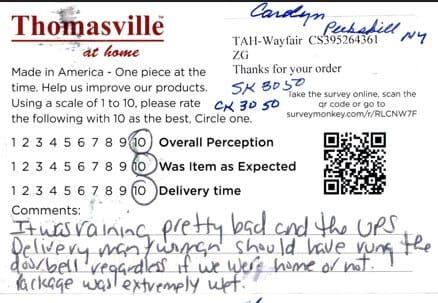 Thomasville
at home
Made in America - One piece at the
time. Help us improve our products.
Using a scale of 1 to 10, please rate
the following with 10 as the best, Circle one.
Carolyn
Peekskill NY
TAH-Wayfair CS395264361
ZG
Thanks for your order
SK 30 50
CK 30 50
Take the survey online, scan the
qr code or go to
surveymonkey.com/r/RLCNW7F
1 2 3 4 5 6 7 8 9 10 Overall Perception
1 2 3 4 5 6 7 8 9 10 Was Item as Expected
1 2 3 4 5 6 7 8 9 10 Delivery time
Comments:
It was raining pretty bad and the UPS
Delivery man/woman should have rung the
doorbell regardless if we were home or not.
Package was extremely wet.